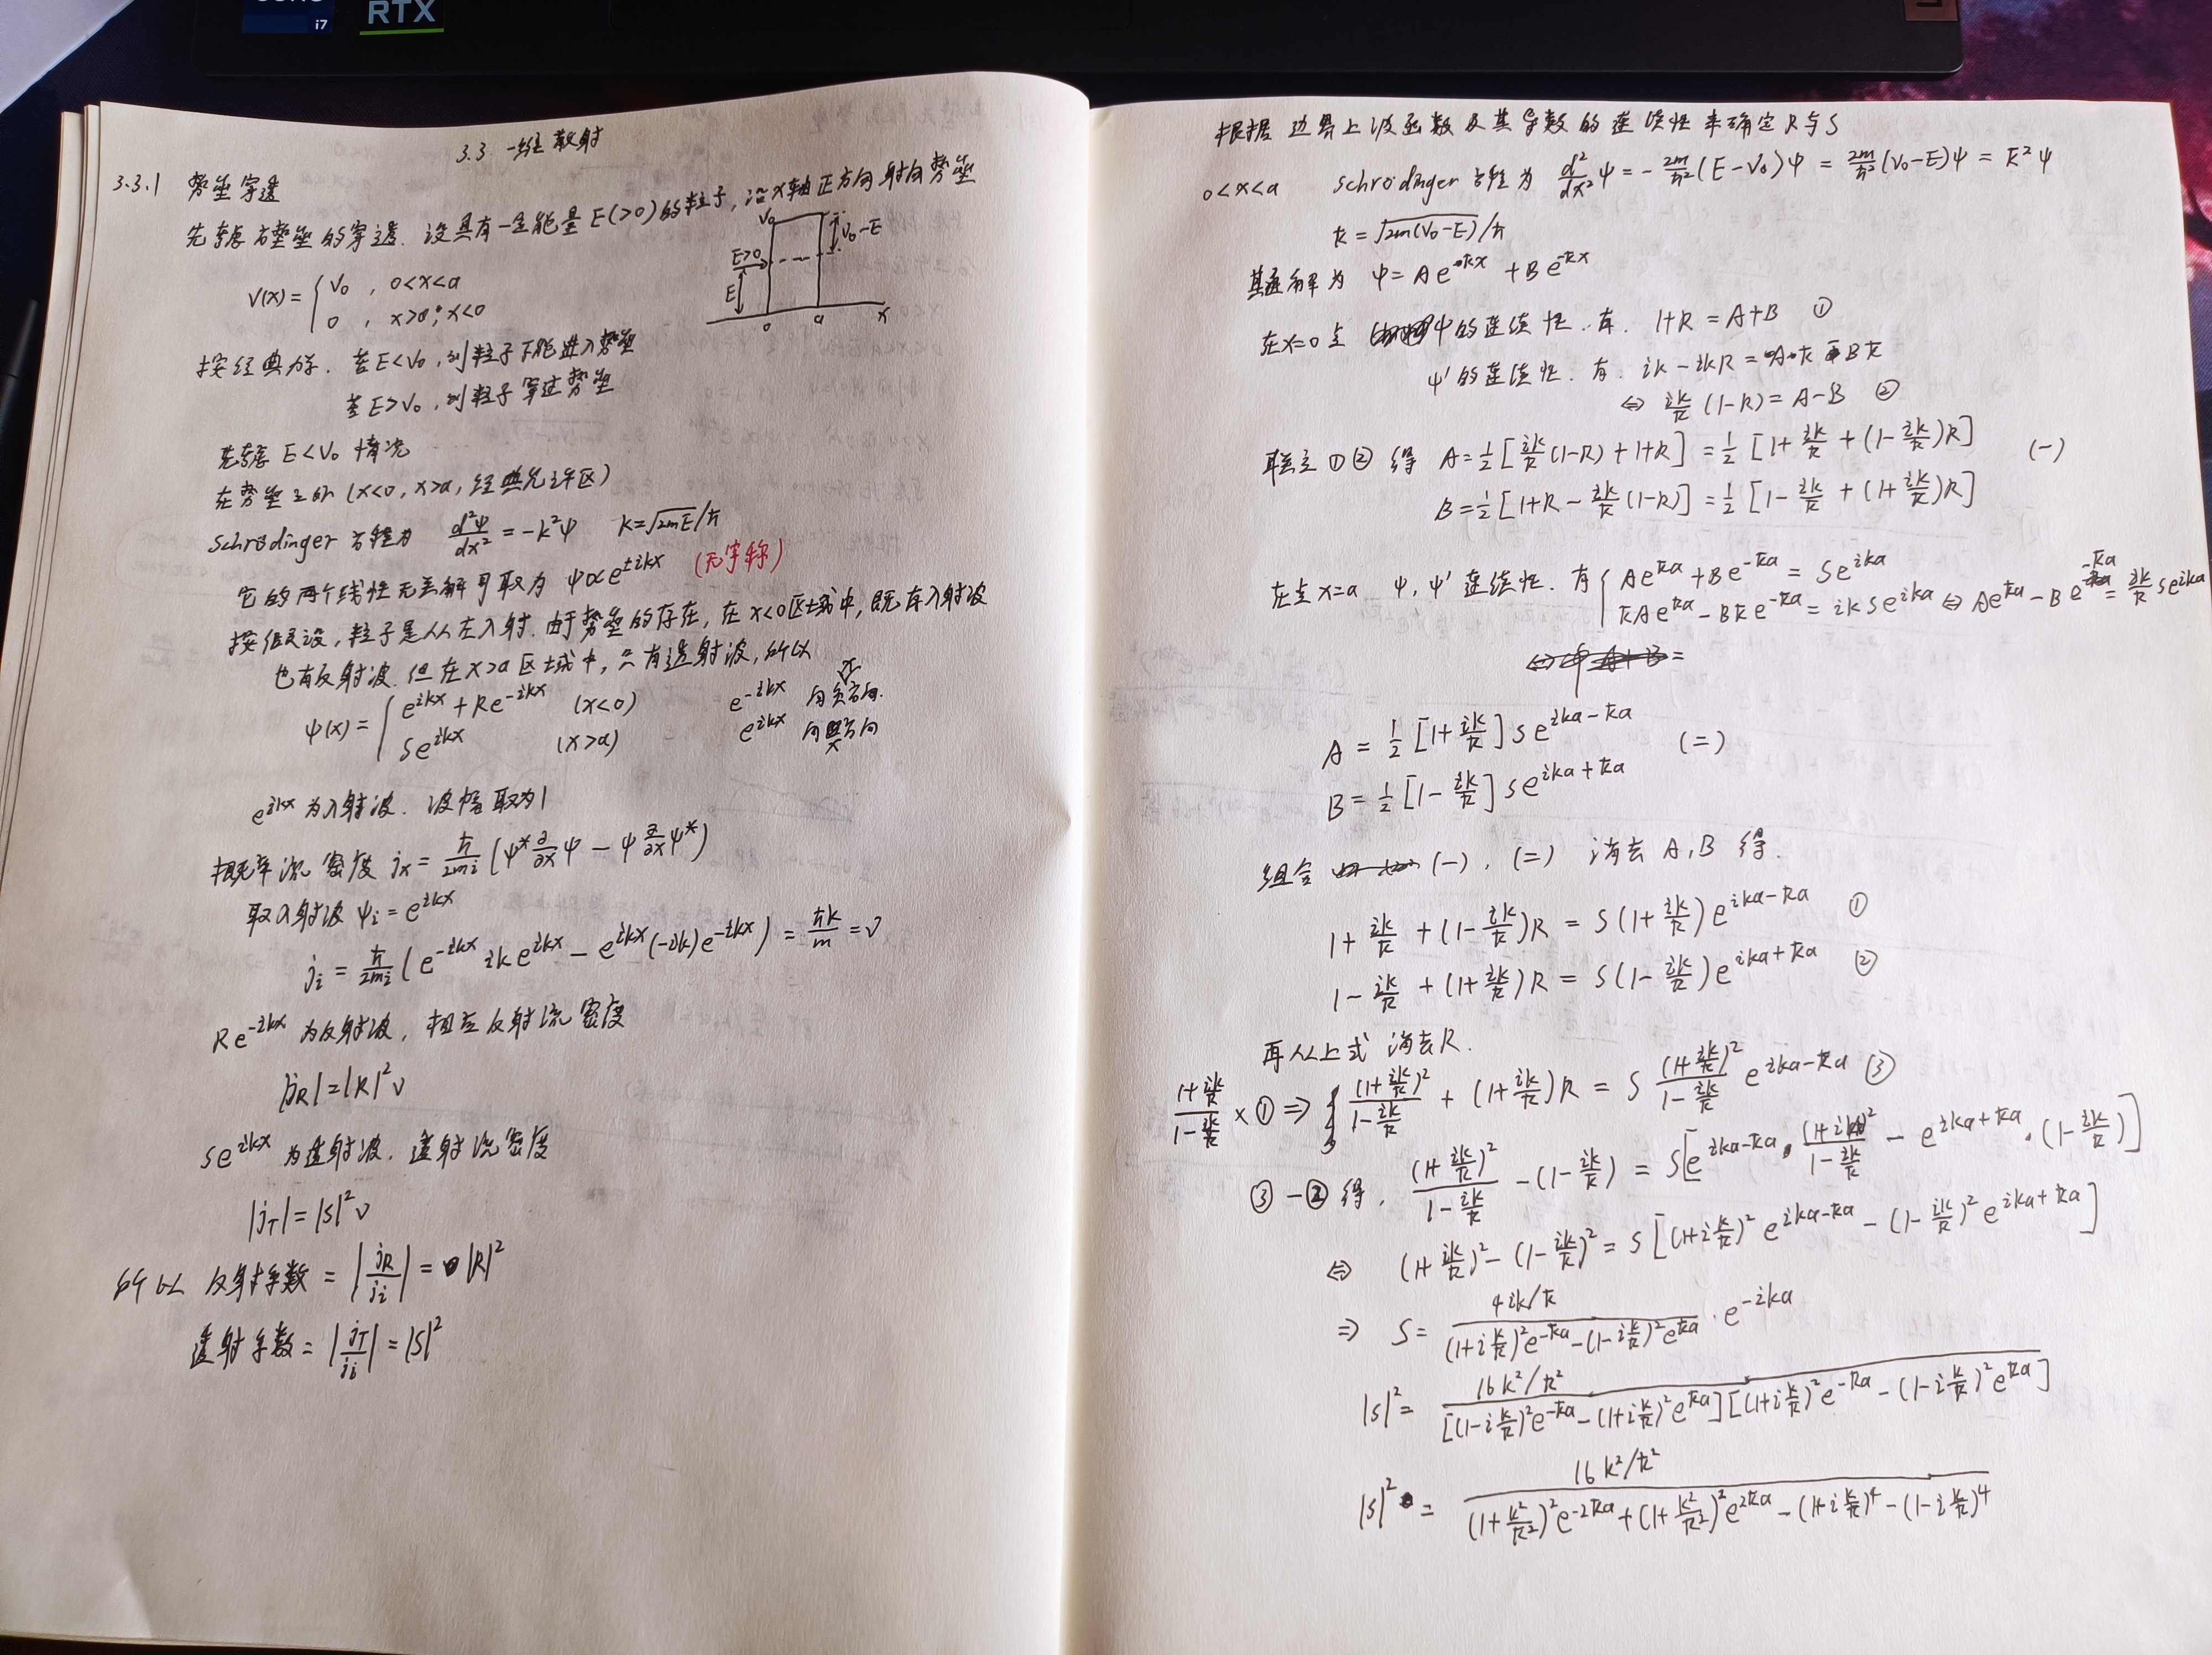 i7
RTX
3.3 一维散射
3.3.1 势垒穿透
先考虑方势垒的穿透. 设具有一定能量E(>0)的粒子, 沿x轴正方向射向势垒
V(x) = { V₀ , 0<x<a
0 , x>a; x<0
V₀
V₀-E
E>0
E
0 a x
按经典力学. 若E<V₀, 则粒子不能进入势垒
若E>V₀, 则粒子穿过势垒
先考虑 E<V₀ 情况
在势垒之外 (x<0, x>a, 经典允许区)
Schrödinger 方程为 d²ψ/dx² = -k²ψ k=√2mE/ħ
它的两个线性无关解可取为 ψ∝e^{±ikx} (无宇称)
按假设, 粒子是从左入射. 由于势垒的存在, 在x<0区域中, 既有入射波
也有反射波. 但在x>a区域中, 只有透射波, 所以
ψ(x) = { e^{ikx} + Re^{-ikx} (x<0) e^{-ikx} 向负方向.
Se^{ikx} (x>a) e^{ikx} 向正方向
e^{ikx} 为入射波. 波幅取为1
概率流密度 jₓ = ħ/2mi (ψ* ∂/∂x ψ - ψ ∂/∂x ψ*)
取入射波 ψi = e^{ikx}
ji = ħ/2mi (e^{-ikx} ik e^{ikx} - e^{ikx}(-ik)e^{-ikx}) = ħk/m = v
Re^{-ikx} 为反射波, 相应反射流密度
|jR| = |R|²v
Se^{ikx} 为透射波. 透射流密度
|jT| = |S|²v
所以 反射系数 = |jR/ji| = |R|²
透射系数 = |jT/ji| = |S|²
根据边界上波函数及其导数的连续性来确定R与S
0<x<a Schrödinger 方程为 d²/dx² ψ = -2m/ħ² (E-V₀)ψ = 2m/ħ² (V₀-E)ψ = k̄²ψ
k̄ = √2m(V₀-E)/ħ
其通解为 ψ = Ae^{k̄x} + Be^{-k̄x}
在x=0点 ψ的连续性. 有. 1+R = A+B ①
ψ'的连续性. 有. ik-ikR = Ak̄ - Bk̄
⇔ ik/k̄ (1-R) = A-B ②
联立①②得 A = 1/2 [ik/k̄ (1-R) + 1+R] = 1/2 [1+ ik/k̄ + (1- ik/k̄)R] (一)
B = 1/2 [1+R - ik/k̄ (1-R)] = 1/2 [1- ik/k̄ + (1+ ik/k̄)R]
在点x=a ψ, ψ' 连续性. 有 { Ae^{k̄a} + Be^{-k̄a} = Se^{ika}
k̄Ae^{k̄a} - Bk̄e^{-k̄a} = ikSe^{ika} ⇔ Ae^{k̄a} - Be^{-k̄a} = ik/k̄ Se^{ika}
A = 1/2 [1+ ik/k̄] Se^{ika-k̄a}
(二)
B = 1/2 [1- ik/k̄] Se^{ika+k̄a}
组合 (一), (二) 消去A,B 得.
1+ ik/k̄ + (1- ik/k̄)R = S(1+ ik/k̄)e^{ika-k̄a} ①
1- ik/k̄ + (1+ ik/k̄)R = S(1- ik/k̄)e^{ika+k̄a} ②
再从上式消去R.
(1+ ik/k̄)/(1- ik/k̄) × ① ⇒ (1+ ik/k̄)²/(1- ik/k̄) + (1+ ik/k̄)R = S (1+ ik/k̄)²/(1- ik/k̄) e^{ika-k̄a} ③
③-②得. (1+ ik/k̄)²/(1- ik/k̄) - (1- ik/k̄) = S[e^{ika-k̄a}·(1+ik/k̄)²/(1- ik/k̄) - e^{ika+k̄a}·(1- ik/k̄)]
⇔ (1+ ik/k̄)² - (1- ik/k̄)² = S[(1+i k/k̄)² e^{ika-k̄a} - (1- ik/k̄)² e^{ika+k̄a}]
⇒ S = 4ik/k̄ / ((1+i k/k̄)²e^{-k̄a} - (1-i k/k̄)²e^{k̄a}) · e^{-ika}
|S|² = 16k²/k̄² / [(1-i k/k̄)²e^{-k̄a} - (1+i k/k̄)²e^{k̄a}][(1+i k/k̄)²e^{-k̄a} - (1-i k/k̄)²e^{k̄a}]
|S|² = 16k²/k̄² / ((1+ k²/k̄²)²e^{-2k̄a} + (1+ k²/k̄²)²e^{2k̄a} - (1+i k/k̄)⁴ - (1-i k/k̄)⁴)